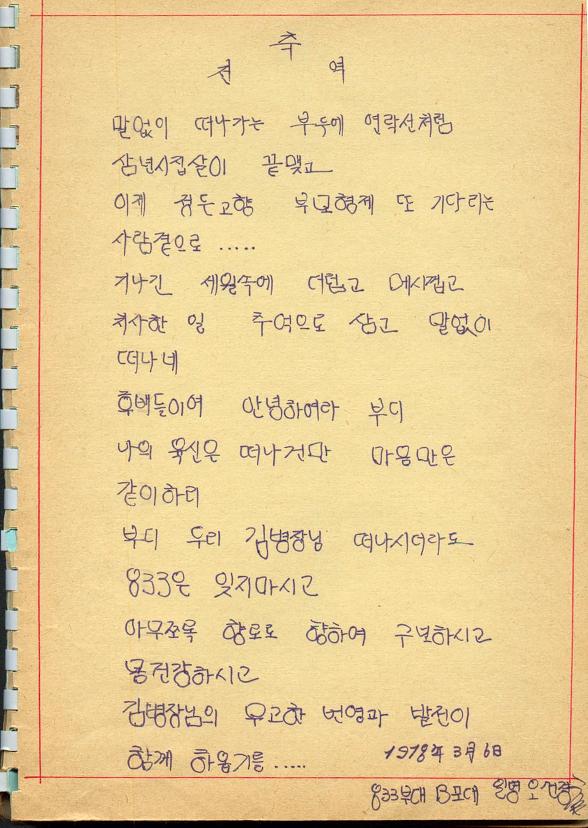 추
역
말없이 떠나가는 부두에 연락선처럼
삼년시집살이 끝맺고
이제 정든고향 부모형제 또 기다리는
사람곁으로 .....
지나간 세월속에 더럽고 메시껍고
치사한 일 추억으로 삼고 말없이
떠나네
후배들이여 안녕하여라 부디
나의 육신은 떠나건만 마음만은
같이하리
부디 우리 김병장님 떠나시더라도
833은 잊지마시고
아무쪼록 향로로 향하여 구보하시고
몸건강하시고
김병장님의 무고한 번영과 발전이
함께 하옵기를 .....
1978年 3月 6日
833부대 B포대 일병